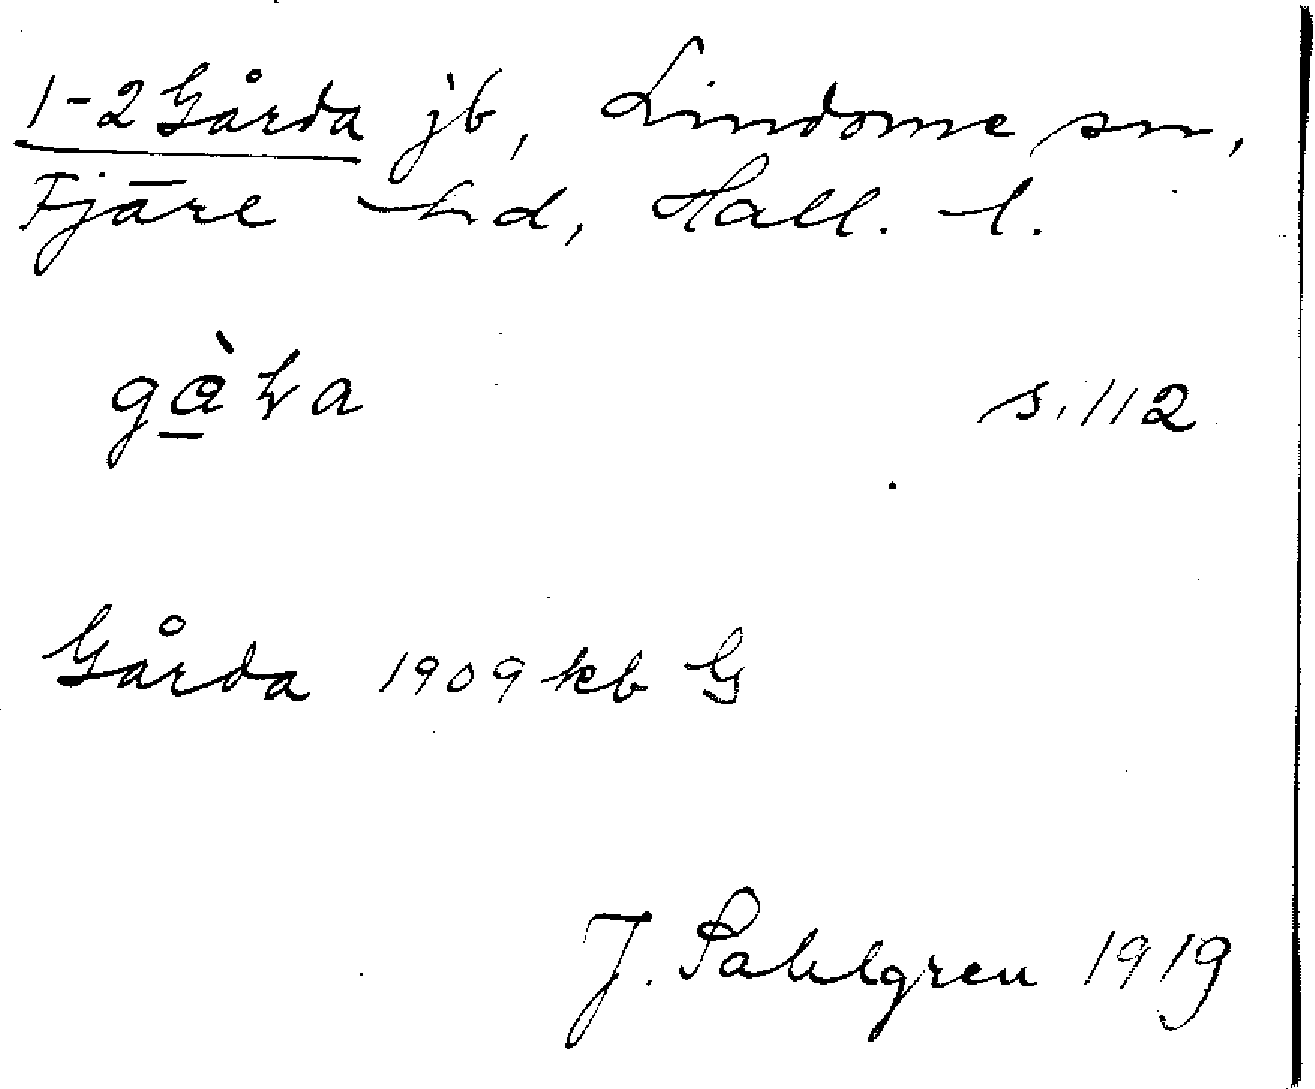 1-2 Gårda jb, Lindome sn,
Fjäre hd, Hall. l.
s. 112
Gårda 1909 kb G
J. Sahlgren 1919